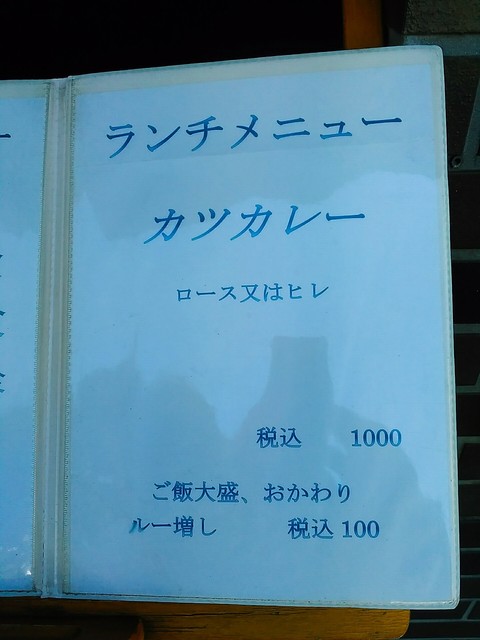 ランチメニュー
カツカレー
ロース又はヒレ
税込 1000
ご飯大盛、おかわり
ルー増し 税込 100